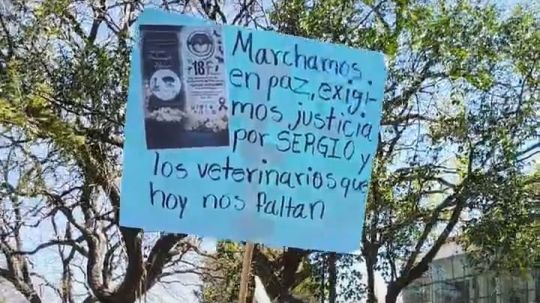 Marchamos
en paz, exigi-
mos justicia
por SERGIO y
los veterinarios que
hoy nos faltan
+18